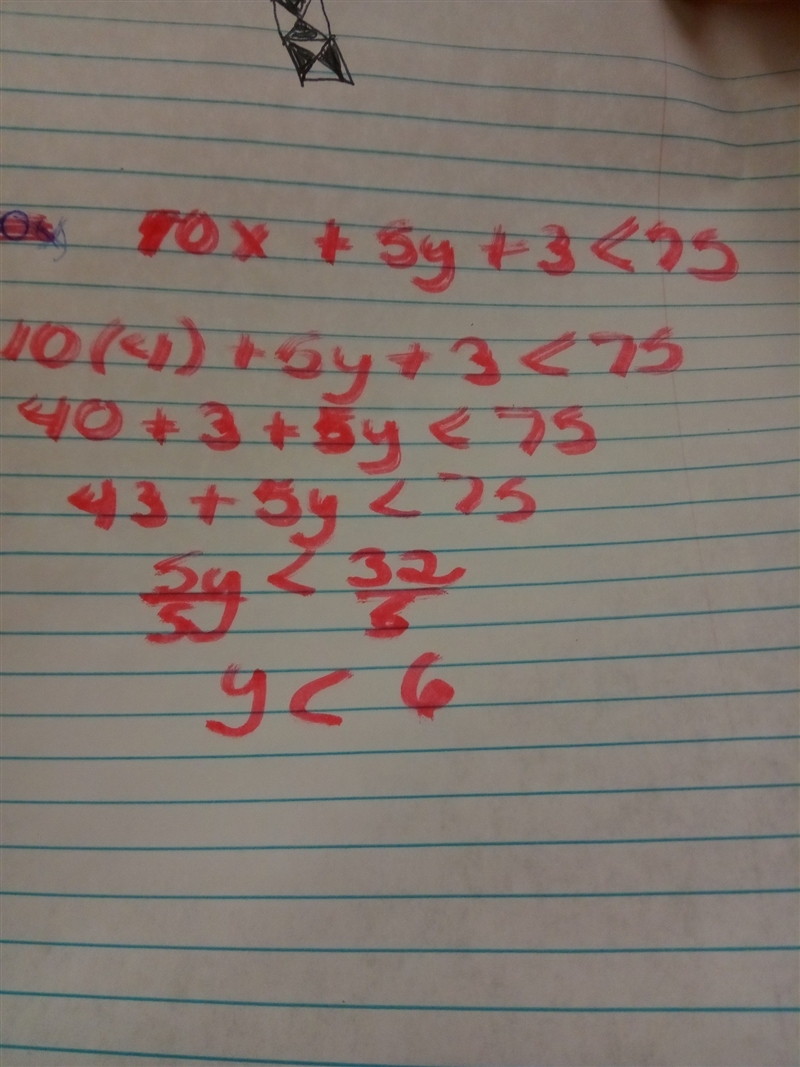 10x + 5y + 3 < 75
10(4) + 5y + 3 < 75
40 + 3 + 5y < 75
43 + 5y < 75
5y/5 < 32/5
y < 6